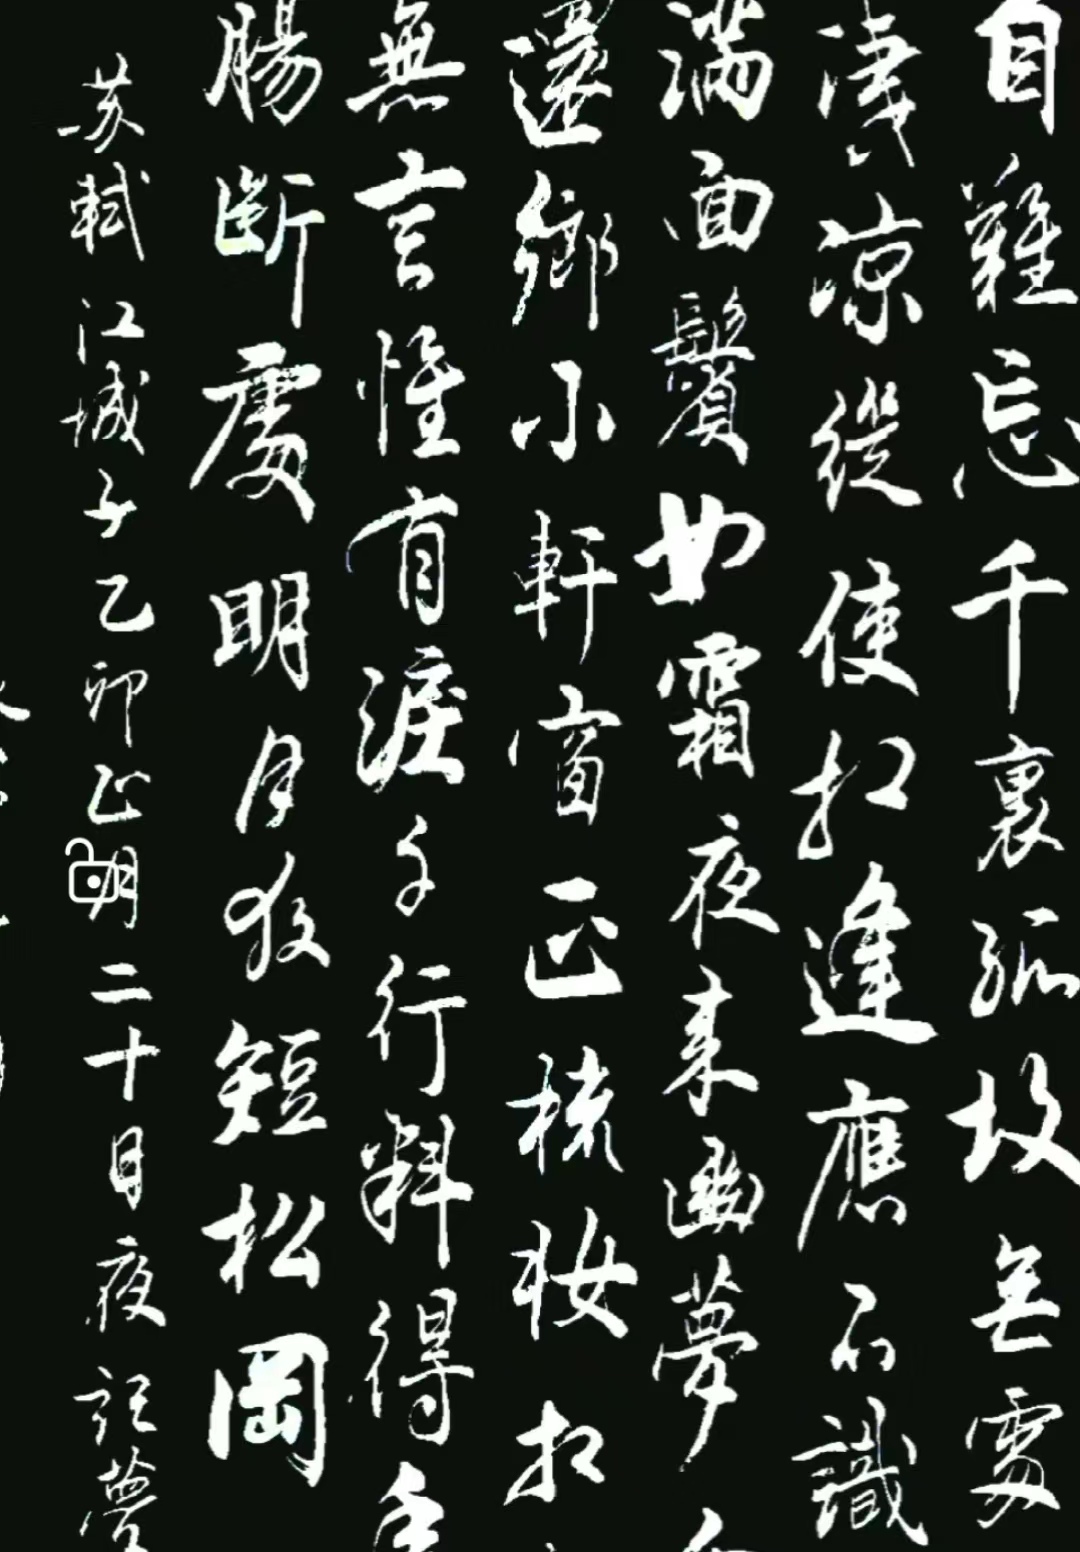 自難忘千裏孤坟無處
淒涼縱使相逢應不識
滿面鬢如霜夜來幽夢
還鄉小軒窗正梳妝相
無言惟有淚千行料得年
腸斷處明月夜短松岡
苏軾江城子乙卯正月二十日夜記夢